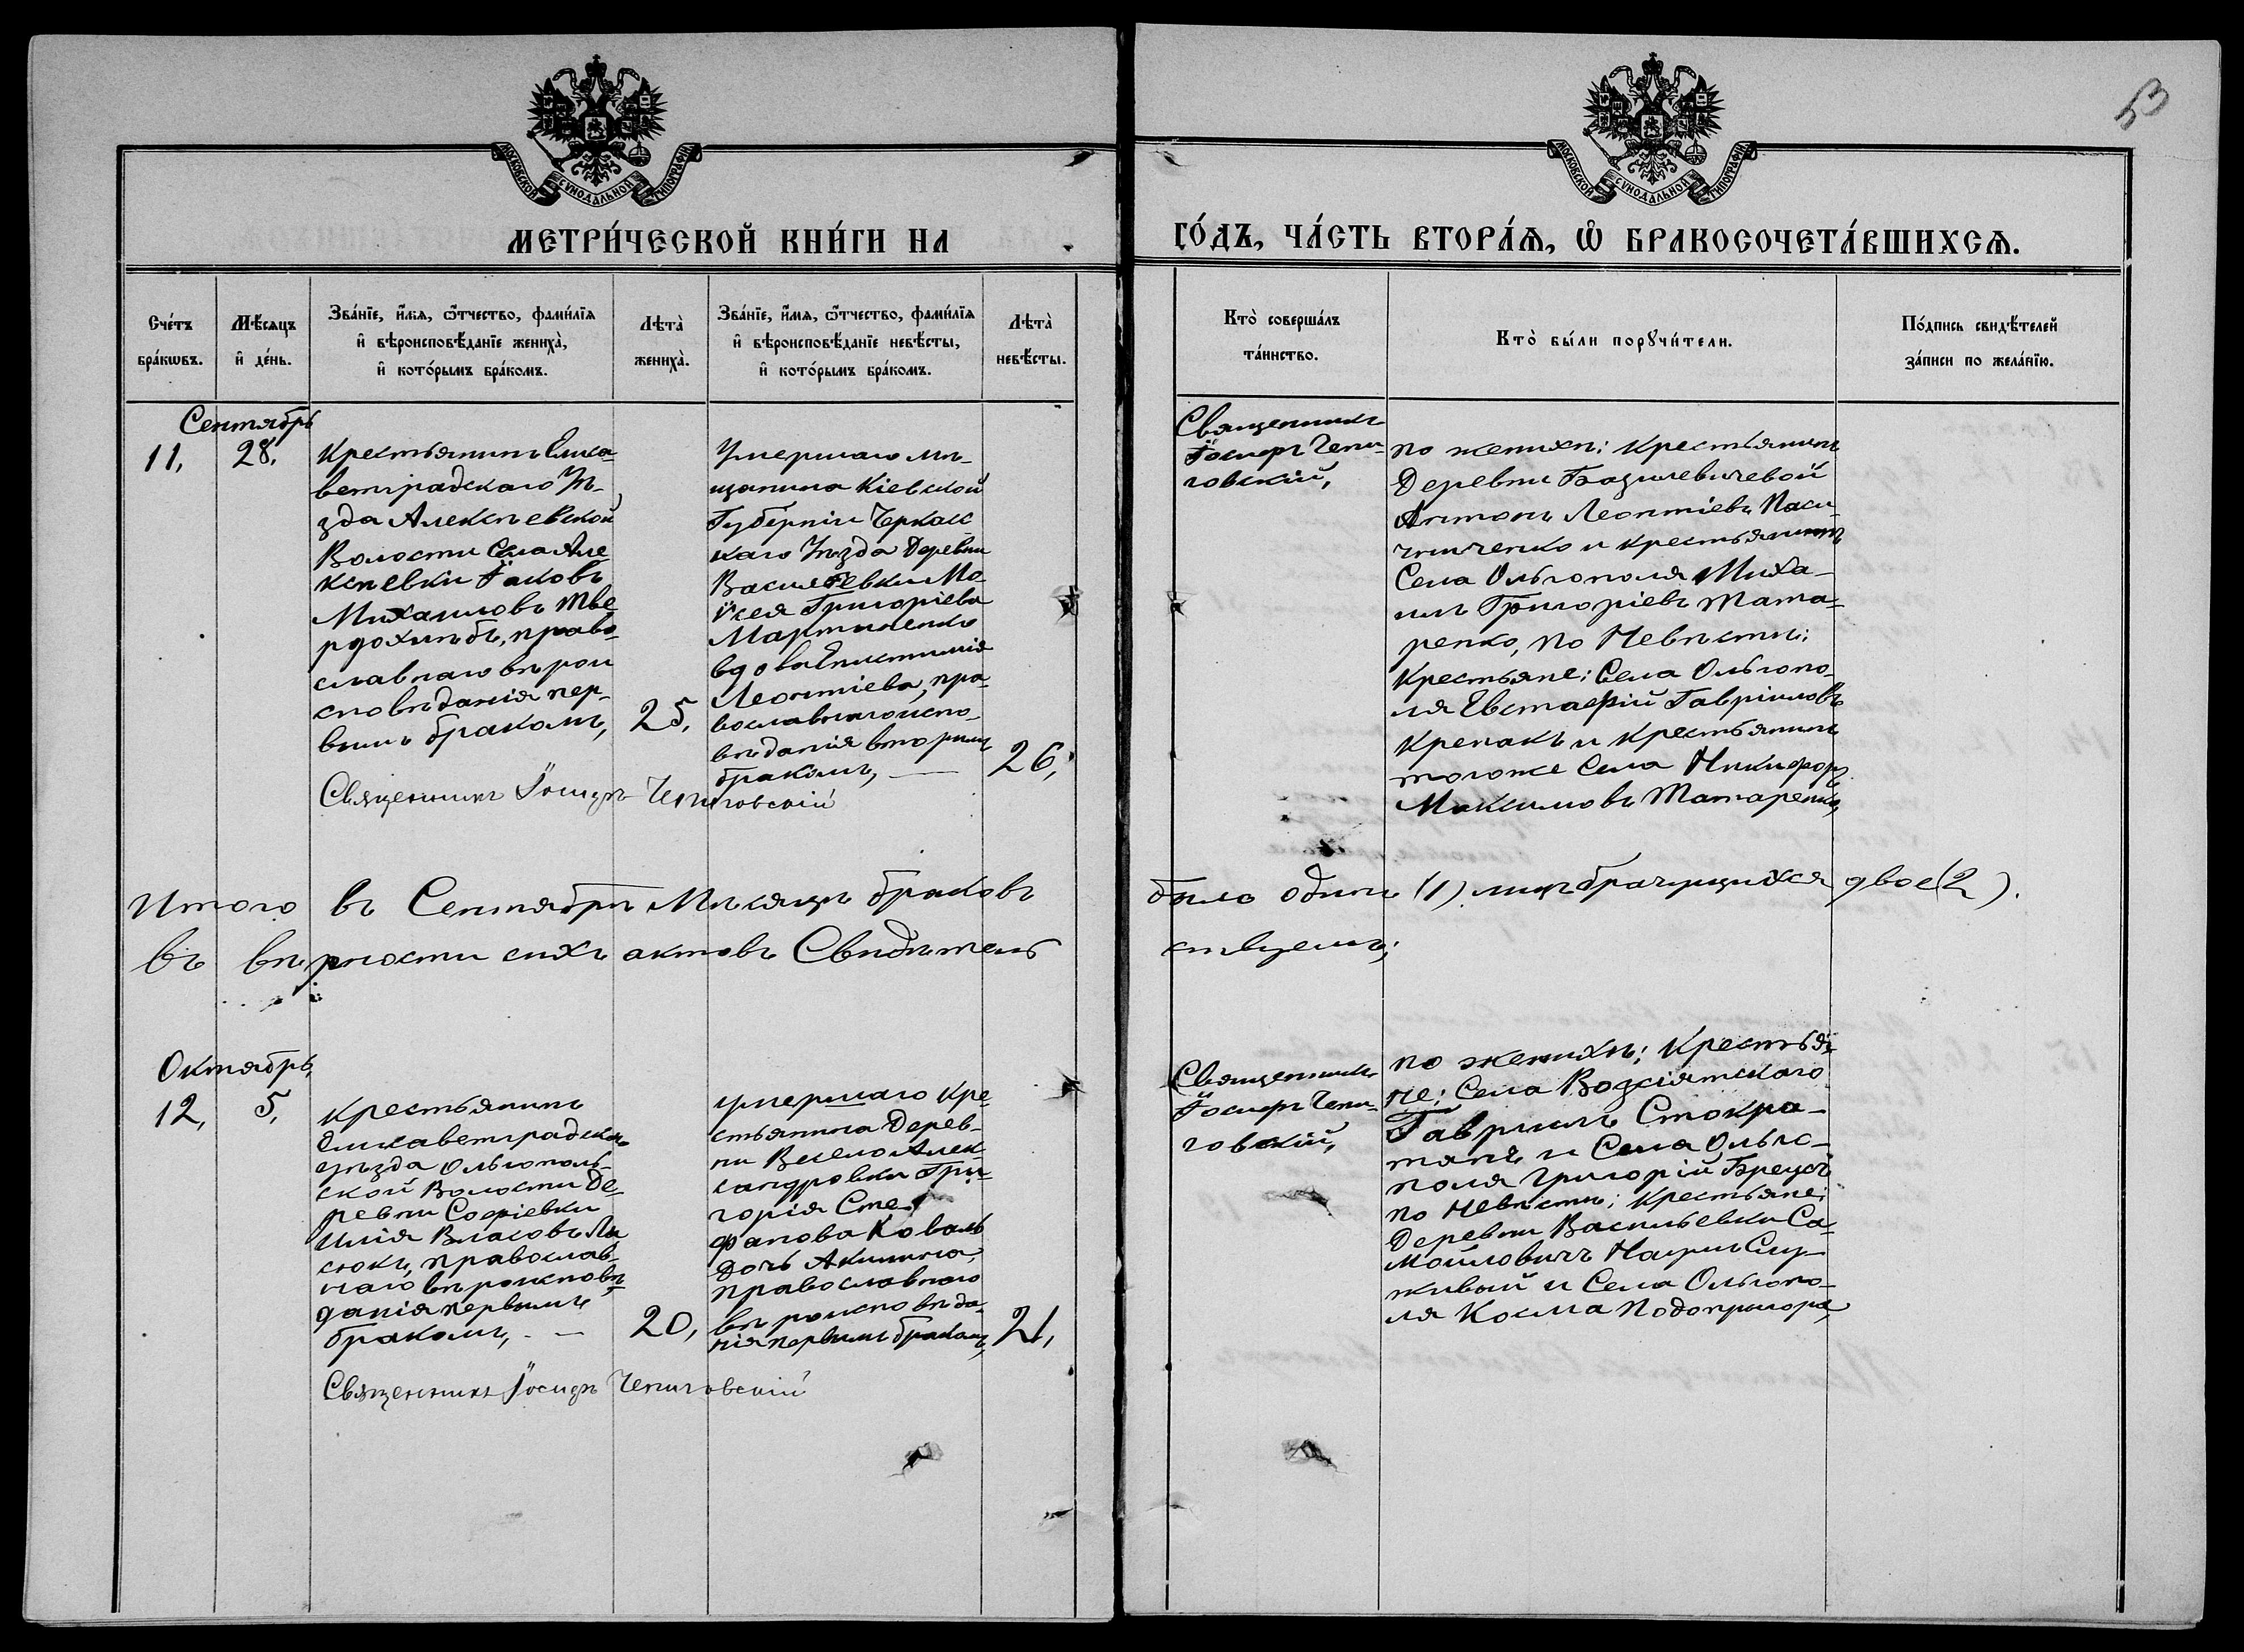 53
МОСКОВСКОЙ СѴНОДАЛЬНОЙ ТИПОГРАФІИ
МОСКОВСКОЙ СѴНОДАЛЬНОЙ ТИПОГРАФІИ
МЕТРИ́ЧЕСКОЙ КНИ́ГИ НА
ГО́ДЪ, ЧА́СТЬ ВТОРА́Ѧ, Ѽ БРАКОСОЧЕТА́ВШИХСѦ.
Сче́тъ
бра́кѡвъ.
Мѣ́сяцъ
и҆ де́нь.
Зва́нїе, и҆́мя, ѻ҆́тчество, фами́лїя
и҆ вѣроисповѣ́данїе жениха̀,
и҆ кото́рымъ бра́комъ.
Лѣта̀
жениха̀.
Зва́нїе, и҆́мя, ѻ҆́тчество, фами́лїя
и҆ вѣроисповѣ́данїе невѣ́сты,
и҆ кото́рымъ бра́комъ.
Лѣта̀
невѣ́сты.
Кто̀ соверша́лъ
та́инство.
Кто̀ бы́ли порꙋчи́тели.
По́дпись свидѣ́телей
за́писи по жела́нїю.
Сентябрь
11,
28,
Крестьянинъ Елиса-
ветградскаго Уѣ-
зда Алексѣевской
Волости Села Але
ксѣевки Іаковъ
Михаиловъ Тве
рдохлѣбъ, право-
славнаго вѣрои
сповѣданія пер-
вымъ бракомъ,
25,
Умершаго мѣ-
щанина Кіевской
Губерніи Черкас
каго Уѣзда Деревни
Василѣевки Мо-
ѵсея Григоріева
Мартыненко
вдова Епистимія
Леонтіева, пра-
вославнагоиспо-
вѣданія вторымъ
бракомъ,
26,
Священникъ Іосифъ Чепиговскій
Священникъ
Іосифъ Чепи-
говскій,
по женихѣ: Крестьянинъ
Деревни Базилевичевой
Антонъ Леонтіевъ Паси-
чниченко и крестьянинъ
Села Ольгополя Миха-
илъ Григоріевъ Тата-
ренко, по Невѣстѣ:
Крестьяне: Села Ольгопо-
ля Евстафій Гавріиловъ
Крепакъ и Крестьянинъ
тогоже Села Никифоръ
Максимовъ Татаренко,
Итого въ Сентябрѣ Мѣсяцѣ браковъ
было одинъ (1) лицъ брачущихся двое (2).
въ вѣрности сихъ актовъ Свидѣтель
ствуемъ;
Октябрь,
12,
5,
Крестьянинъ
Елисаветградскаго
уѣзда Ольгополь-
ской Волости Де-
ревни Софіевки
Илія Власовъ Лы
сюкъ, православ-
наго вѣроисповѣ
данія первымъ
бракомъ,
20,
умершаго Кре-
стьянина Дерев-
ни Весело Алек-
сандровки Гри-
горія Сте
фанова Коваль
дочь Акилина,
православнаго
вѣроисповѣда-
нія первымъ бракомъ,
21,
Священникъ Іосифъ Чепиговскій
Священникъ
Іосифъ Чепи-
говскій,
по женихѣ; Крестья-
не; Села Возсіятскаго
Гавріилъ Стокра-
тянъ и Села Ольго-
поля Григорій Бреусъ
по Невѣстѣ; Крестьяне;
Деревни Васильевки Са-
мойловичъ Наумъ Слу-
живый и Села Ольгопо-
ля Косма Подопригора,